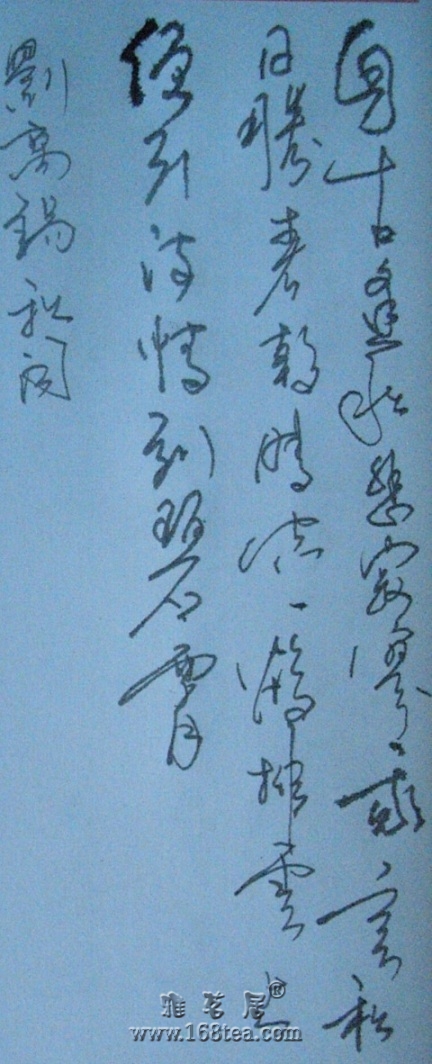 自古逢秋悲寂寥我言秋
日勝春朝晴空一鶴排雲上
便引诗情到碧霄
劉禹錫秋词
雅茗居®
www.168tea.com